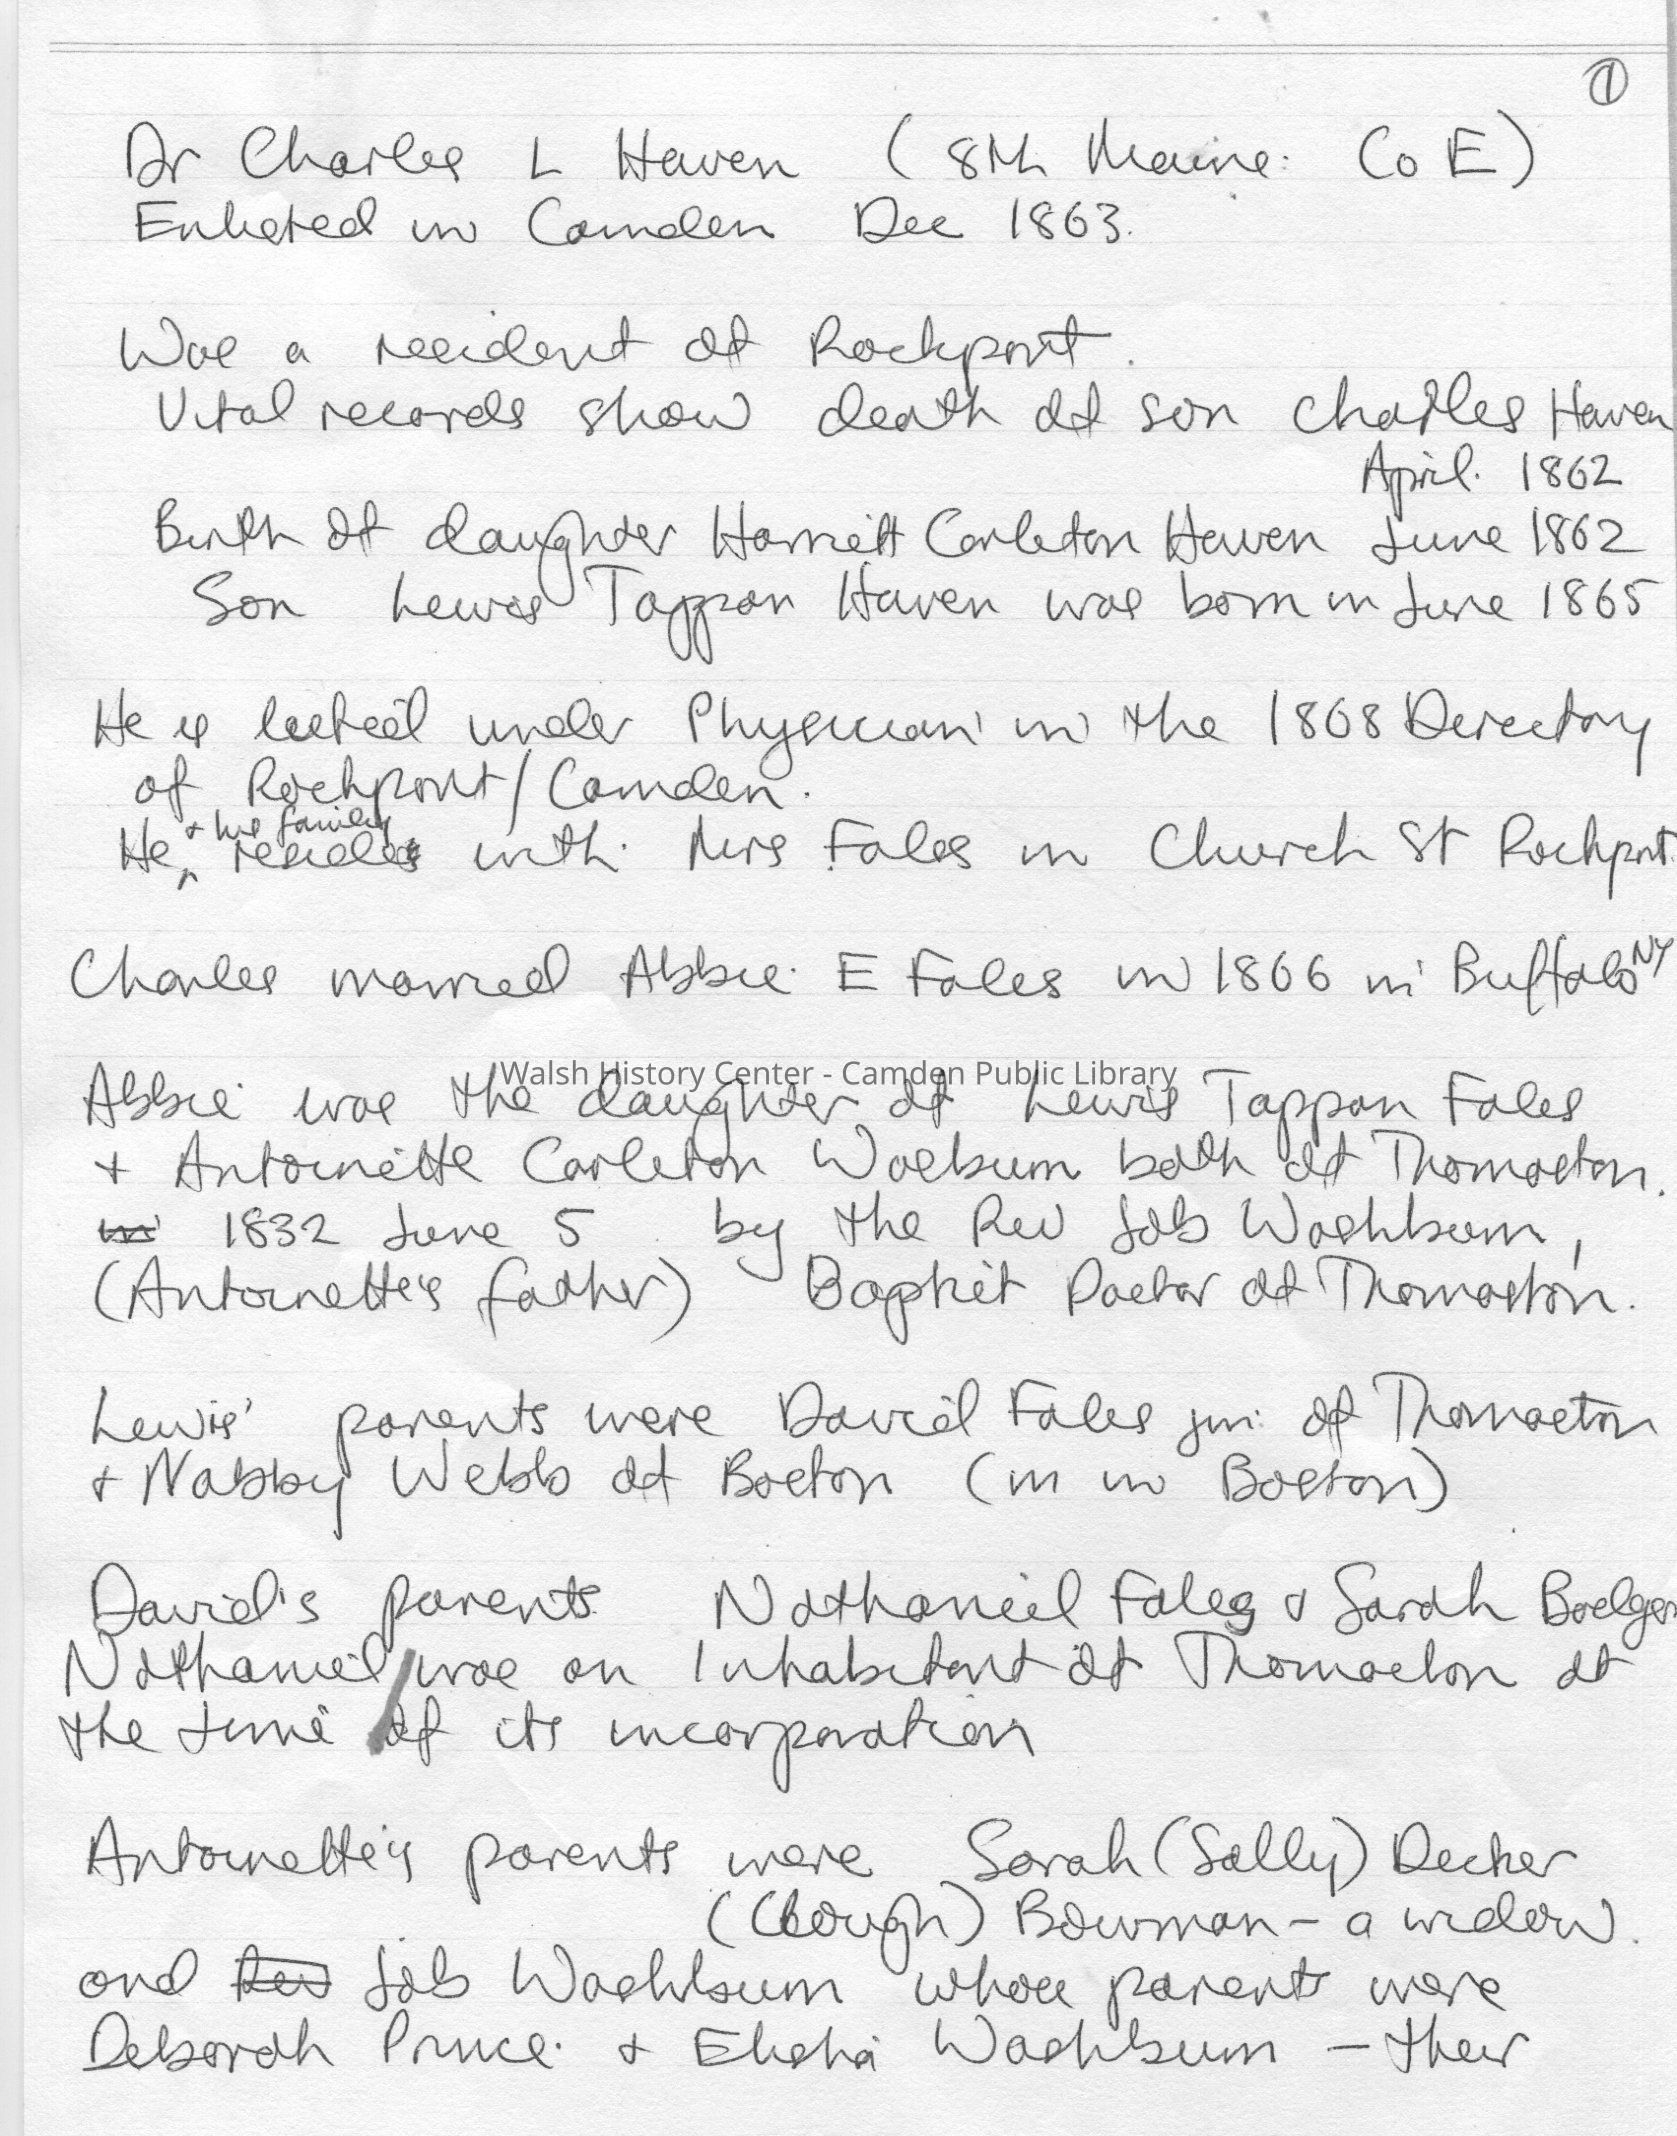 ①
Dr Charles L Haven (8th Maine: Co E)
Enlisted in Camden Dec 1863.
Was a resident of Rockport.
Vital records show death of son Charles Haven
April. 1862
Birth of daughter Harriett Carleton Haven June 1862
Son Lewis Tappan Haven was born in June 1865
He is listed under Physician in the 1868 Directory
of Rockport/Camden.
+ his family
He resides with Mrs Fales in Church St Rockport.
Charles married Abbie E Fales in 1866 in Buffalo NY
Walsh History Center - Camden Public Library
Abbie was the daughter of Lewis Tappan Fales
+ Antoinette Carleton Washburn both of Thomaston.
in 1832 June 5 by the Rev Job Washburn,
(Antoinette's father) Baptist Pastor of Thomaston.
Lewis' parents were David Fales jun: of Thomaston
+ Nabby Webb of Boston (m in Boston)
David's parents Nathaniel Fales & Sarah
Nathaniel was an Inhabitant of Thomaston at
the time of its incorporation
Antoinette's parents were Sarah (Sally) Decker
(Clough) Bowman - a widow.
and Rev Job Washburn whose parents were
Deborah Prince + Elisha Washburn - their